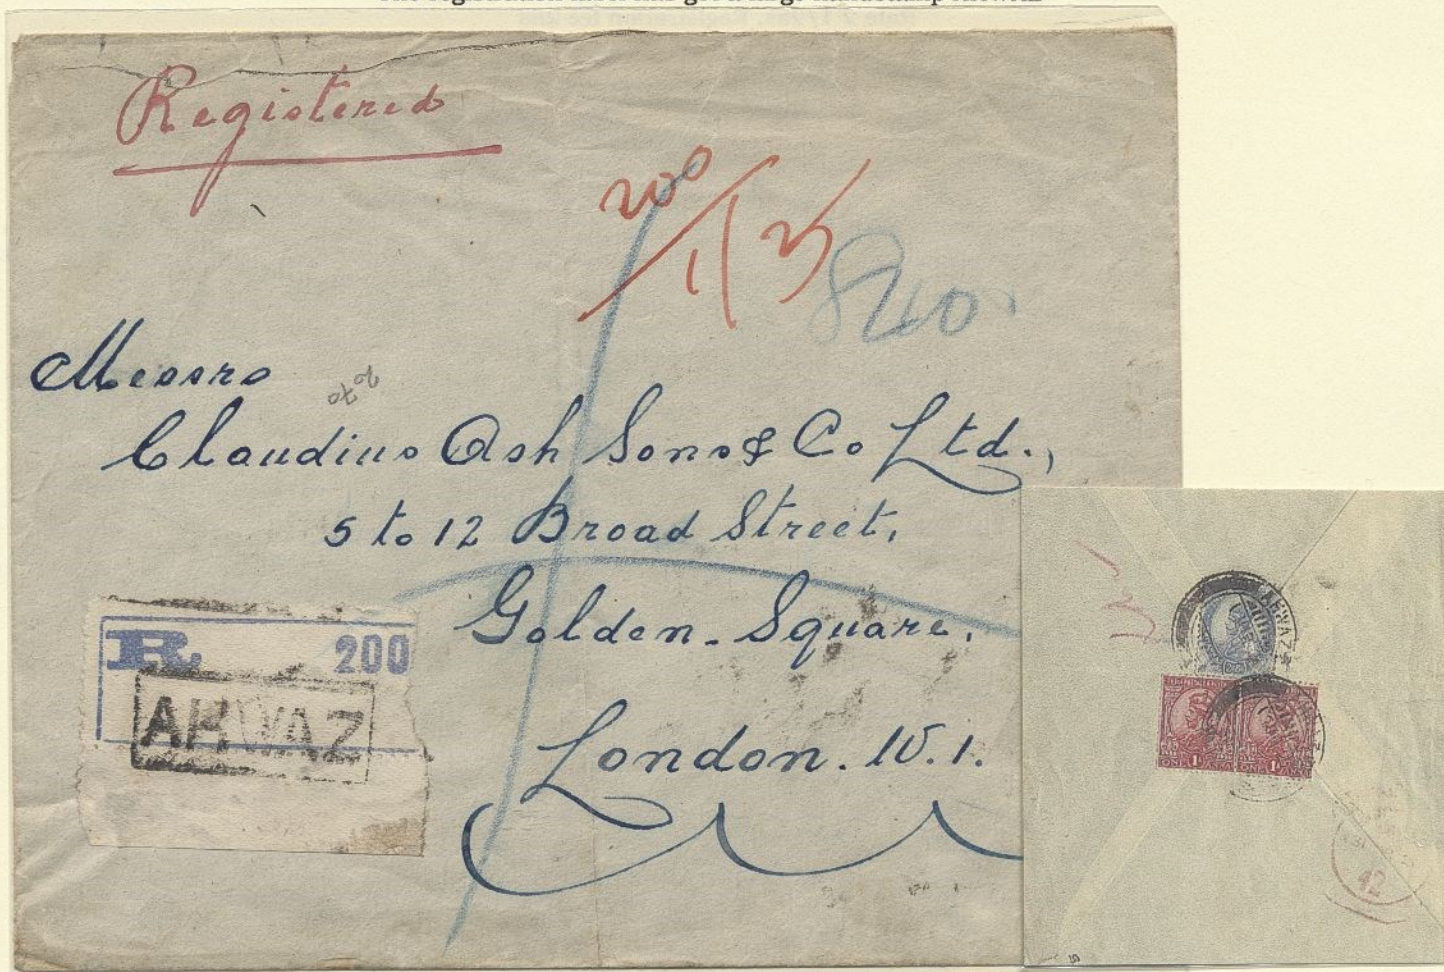 Registered
200
840
Messrs
Claudius Ash Sons & Co Ltd.,
5 to 12 Broad Street,
Golden Square,
London. W.1.
R 200
AHWAZ
AHWAZ
1 1
ONE ANNA ONE ANNA
42